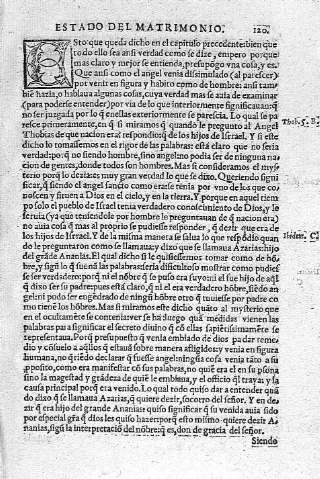 ESTADO DEL MATRIMONIO. 120.
ESto que queda dicho en el capitulo precedente: bien que
todo ello sea ansi verdad como se dize, empero porque
mas claro y mejor se entienda, presupōgo vna cosa, y es
Que ansi como el angel venia dissimulado (al parescer)
por venir en figura y habito como de hombre: ansi tam
bie hazia, o hablaua algunas cosas, cuya verdad mas se auia de examinar
(para poderse entender) por via de lo que interiormente significauan: q̄
no ser juzgada por lo q̄ en ellas exteriormente se parescia. Lo qual se pa
resce primeramente, en q̄ si miramos q̄ quando le pregunto al Angel
Thobias de que nacion era: respondio: q̄ de los hijos de Israel. Y si este
Thob. 5. B
dicho lo tomassemos en el rigor de las palabras: està claro que no seria
verdad: por q̄ no siendo hombre, sino angel: no podia ser de ninguna na-
cion de gentes, donde todos son hombres. Mas si consideramos el myste-
terio por q̄ lo dezia: es muy gran verdad lo que se dixo. Queriendo signi
ficar, q̄ siendo el angel sancto como era: se tenia por vno de los que co-
noscen y siruen a Dios en el cielo, y en la tierra. Y porque en aquel tiem
po solo el pueblo de Israel tenia verdadero conoscimiento de Dios, y le
seruia (ya que teniendole por hombre le preguntauan de q̄ nacion era)
no auia cosa q̄ mas al proprio se pudiesse responder, q̄ dezir que era de
los hijos de Israel. Y de la misma manera se salua lo que respōdio quan
Ibidem. C
do le preguntaron como se llamaua: y dixo que se llamaua Azarias: hijo
del grāde Ananias. El qual dicho si le quisiessemos tomar como de hō-
bre, y segū lo q̄ suenā las palabras: seria dificultoso mostrar como pudies
se ser verdadero: por q̄ ni el nōbre q̄ se puso era suyo: ni el fue hijo de aql̄
q̄ dixo ser su padre: pues està claro, q̄ ni el era verdadero hōbre, siēdo an
gel: ni podia ser engēdrado de ningū hōbre otro q̄ tuuiesse por padre co
mo tienē los hōbres. Mas si miramos este dicho quāto al mysterio que
en el ocultamēte se contenia: ver se ha luego quā medidas vienen las
palabras para significar el secreto diuino q̄ cō ellas sapiētissimamēte se
representaua. Porq̄ presupuesto q̄ venia embiado de dios padre reme-
dio y cōsuelo a aq̄llos q̄ estauā sobre manera afligidos: y venia en figura
humana, no q̄riēdo declarar q̄ fuesse angel: ningūa cosa venia tāto a su
pposito, como era manifestar cō sus palabras, no quiē era el en su psona
sino la magestad y grādeza de quiē le embiaua, y el officio q̄l traya: y la
causa principal por q̄ era venido. Lo qual todo quiso dar a entender quā
do dixo q̄ se llamaua Azarias, q̄ quiere dezir, socorro del señor. Y en de-
zir q̄ era hijo del grande Ananias: quiso significar q̄ su venida auia sido
por especial grāa q̄ dios les quiso hazer: por q̄ esto mismo quiere dezir A-
nanias, segū la interpretaciō del nōbre: q̄ es, don de gracia del señor.
Siendo